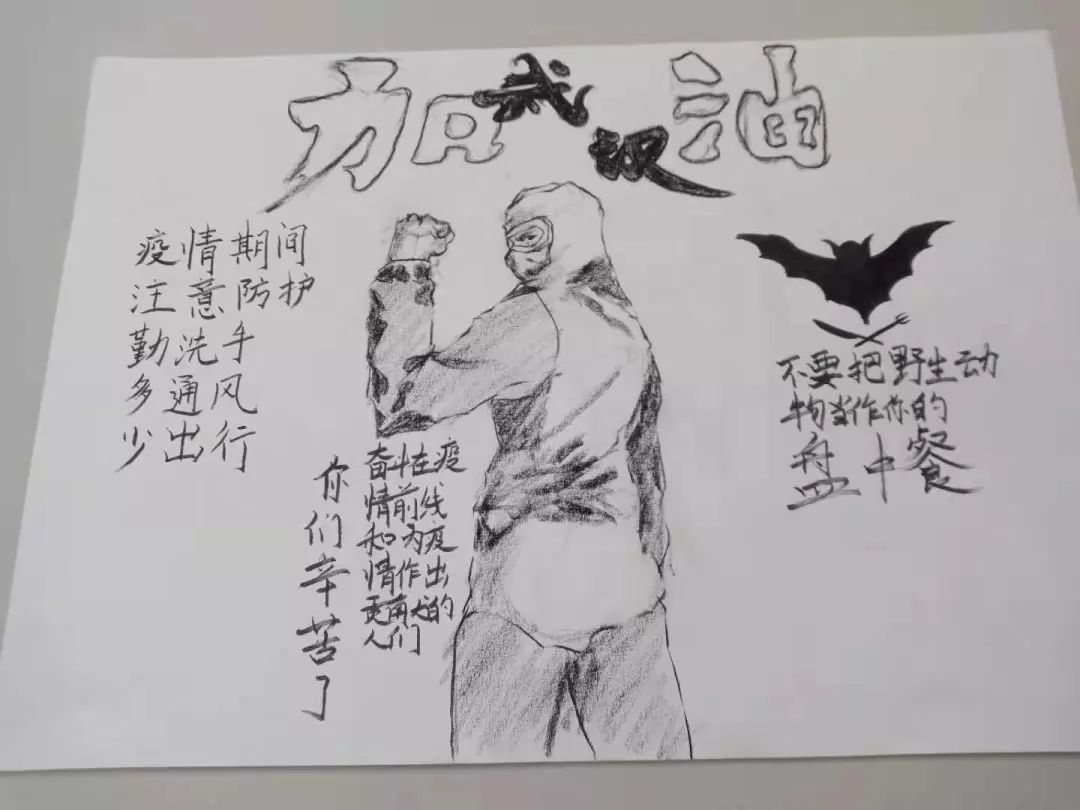 武汉
加油
疫情期间
注意防护
勤洗手
多通风
少出行
不要把野生动
物当作你的
盘中餐
奋斗在疫
情前线
和为疫
情作出
贡献的
人们
你们辛苦了